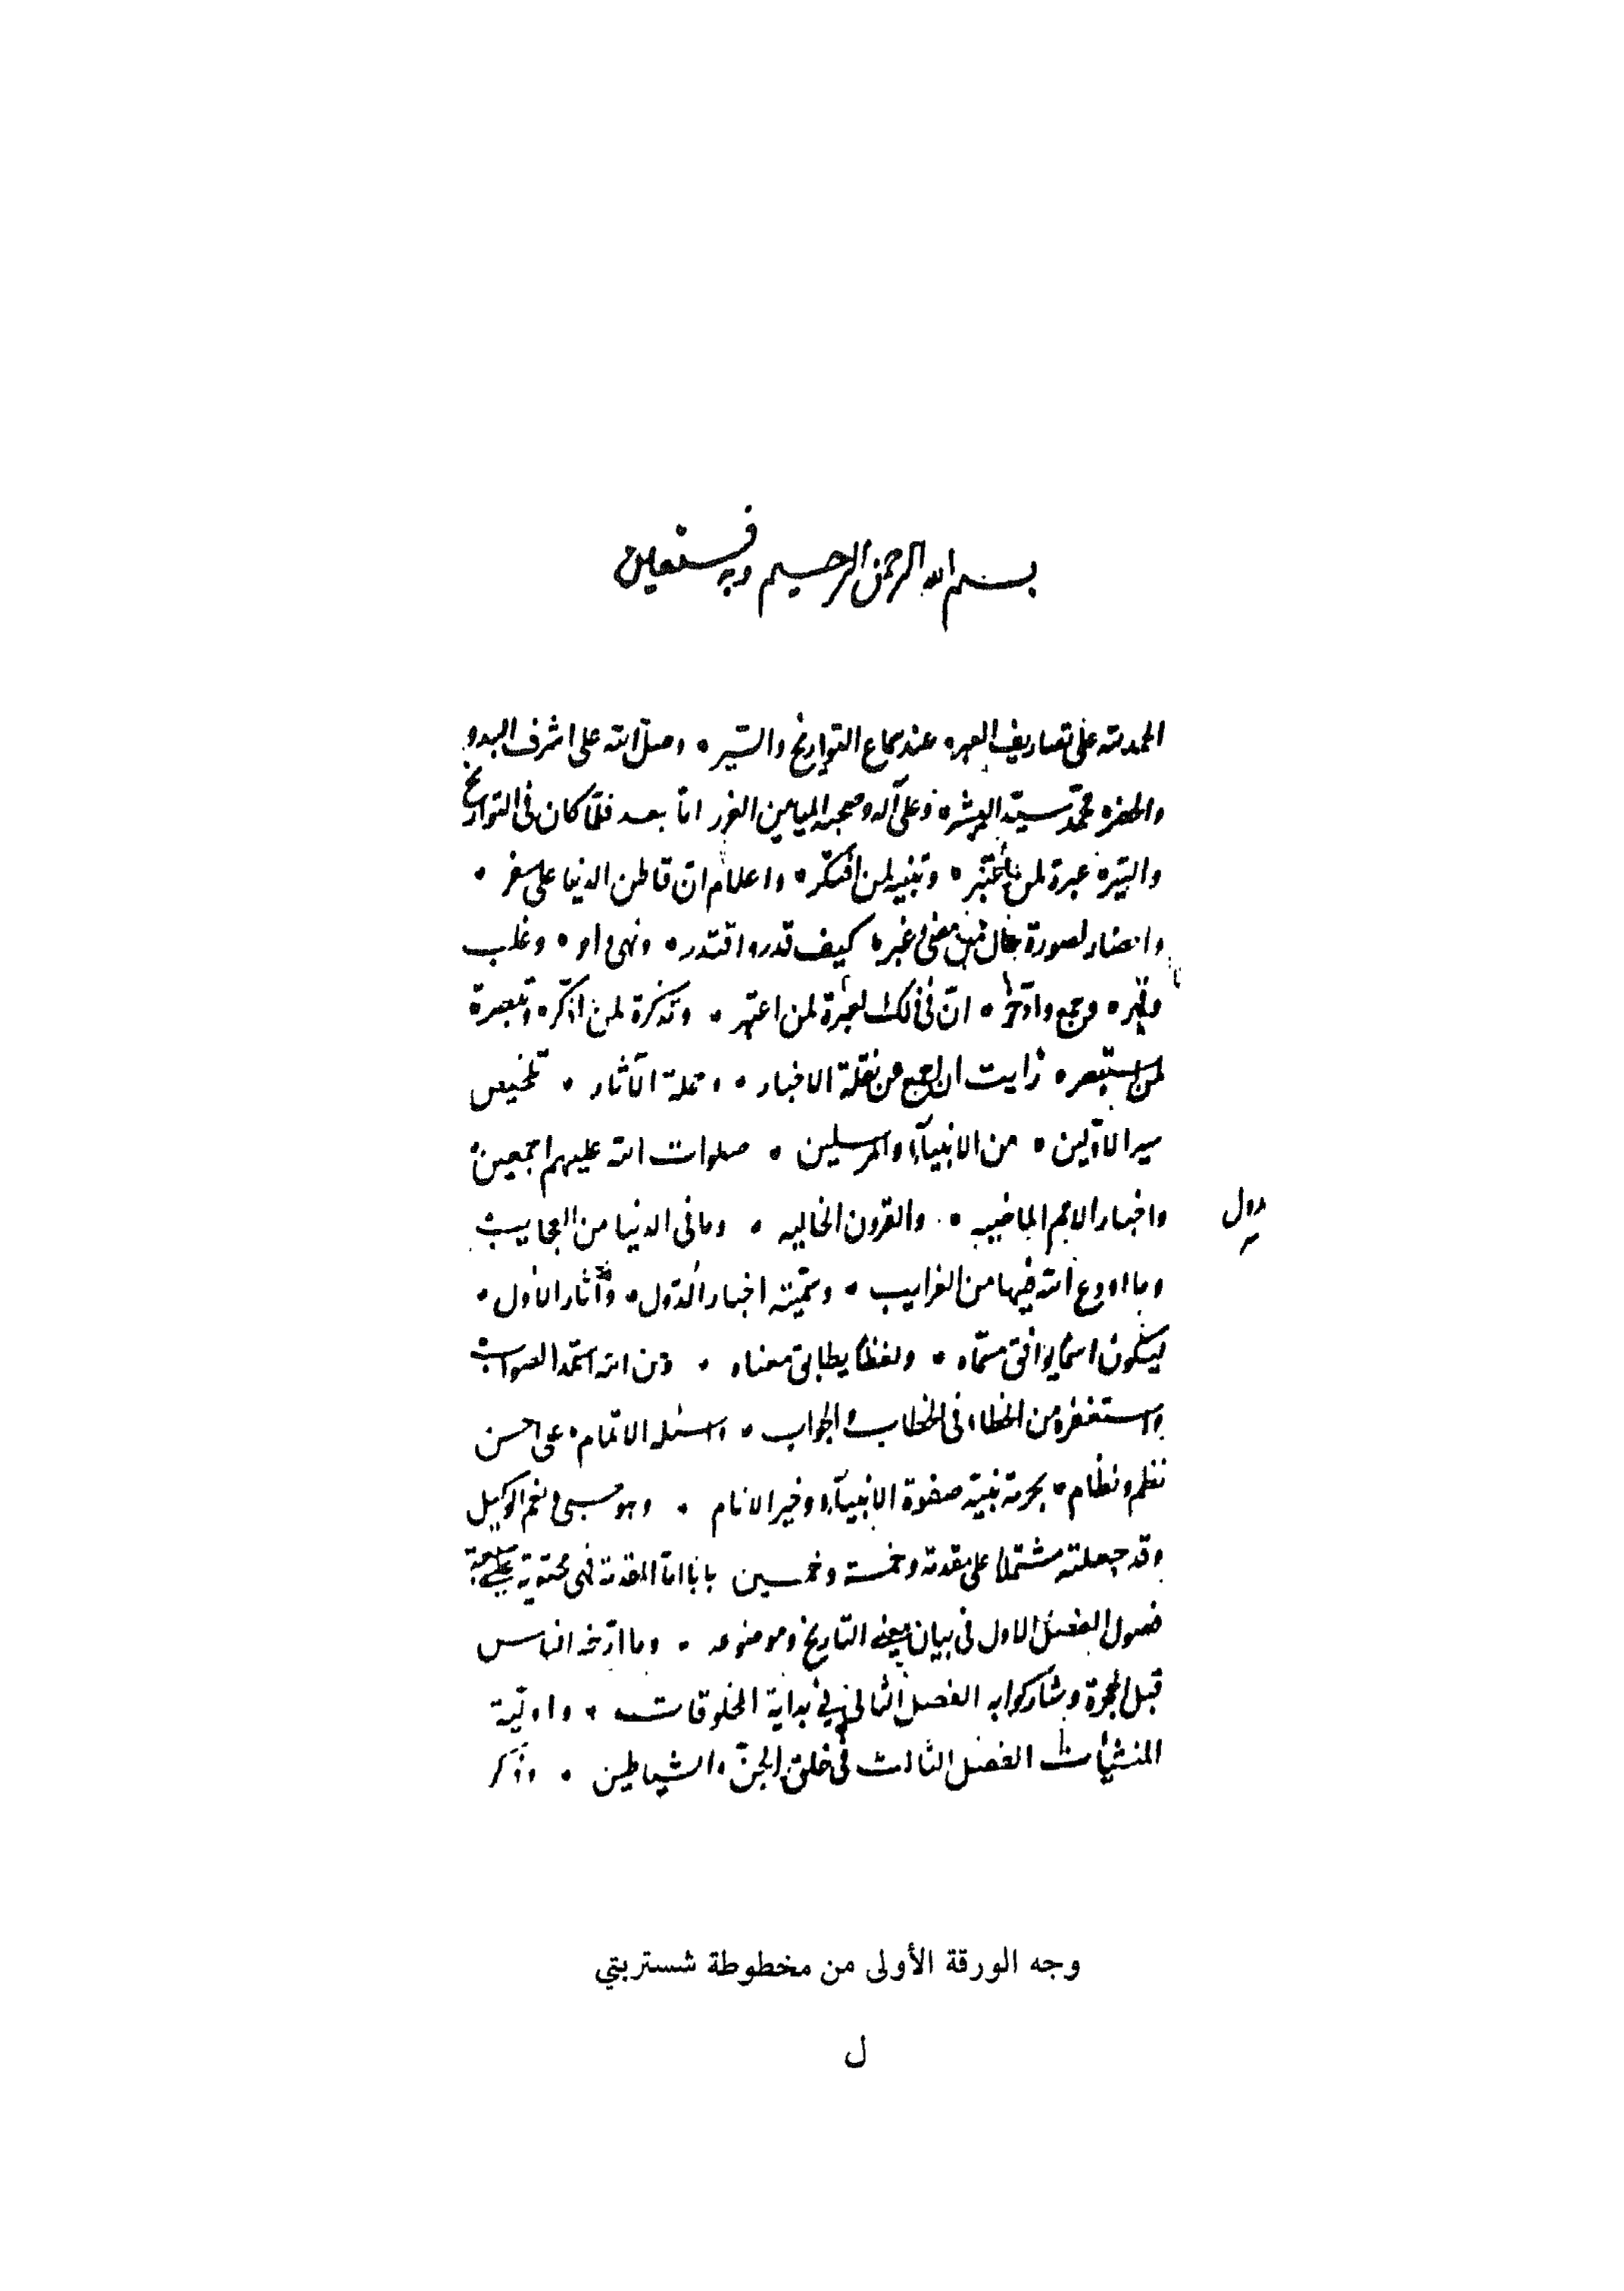 بسم الله الرحمن الرحيم وبه نستعين
الحمد لله على تصاريف العبر • عند سماع التواريخ والسير • وصلى الله على اشرف البدو
والحضر محمد سيد البشر • وعلى آله وصحبه الميامين الغرر اما بعد فلما كان فى التواريخ
والسير • عبرة لمن اعتبر • وتنبيه لمن افتكر • واعلام ان قاطن الدنيا على سفر •
واحضار لصورة حال من مضى وغبر • كيف قدر واقتدر • ونهى وامر • وغلب
وقهر • وجمع وادخر • ان فى ذلك لعبرة لمن اعتبر • وتذكرة لمن اذكر • وتبصرة
لمن استبصر • رايت ان اجمع من نقلة الاخبار • وحملة الآثار • تلخيص
سير الاولين • من الانبيآء والمرسلين • صلوات الله عليهم اجمعين
واخبار الامم الماضيه • والقرون الخاليه • وما فى الدنيا من العجايب
دول
وما اودع الله فيها من الغرايب • وسميته اخبار الدول • وآثار الاول •
ليكون اسما يوافق مسماه • ولفظا يطابق معناه • ومن الله استمد الصواب
واستغفره من الخطاء فى الخطاب والجواب • واسئله الاتمام • على احسن
نظم ونظام • بحرمة نبيه صفوة الانبيآء وخير الانام • وهو حسبى ونعم الوكيل
وقد جعلته مشتملا على مقدمة وخمسة وخمسين بابا اما المقدمة فهى محتوية على
فصول الفصل الاول فى بيان معنى التاريخ وموضوعه • وما ارخه الناس
قبل الهجرة وشاركوا به الفصل الثانى فى بداية المخلوقات • واولية
المنشيات الفصل الثالث فى خلق الجن والشياطين • وذكر
وجه الورقة الأولى من مخطوطة شستربتي
ل